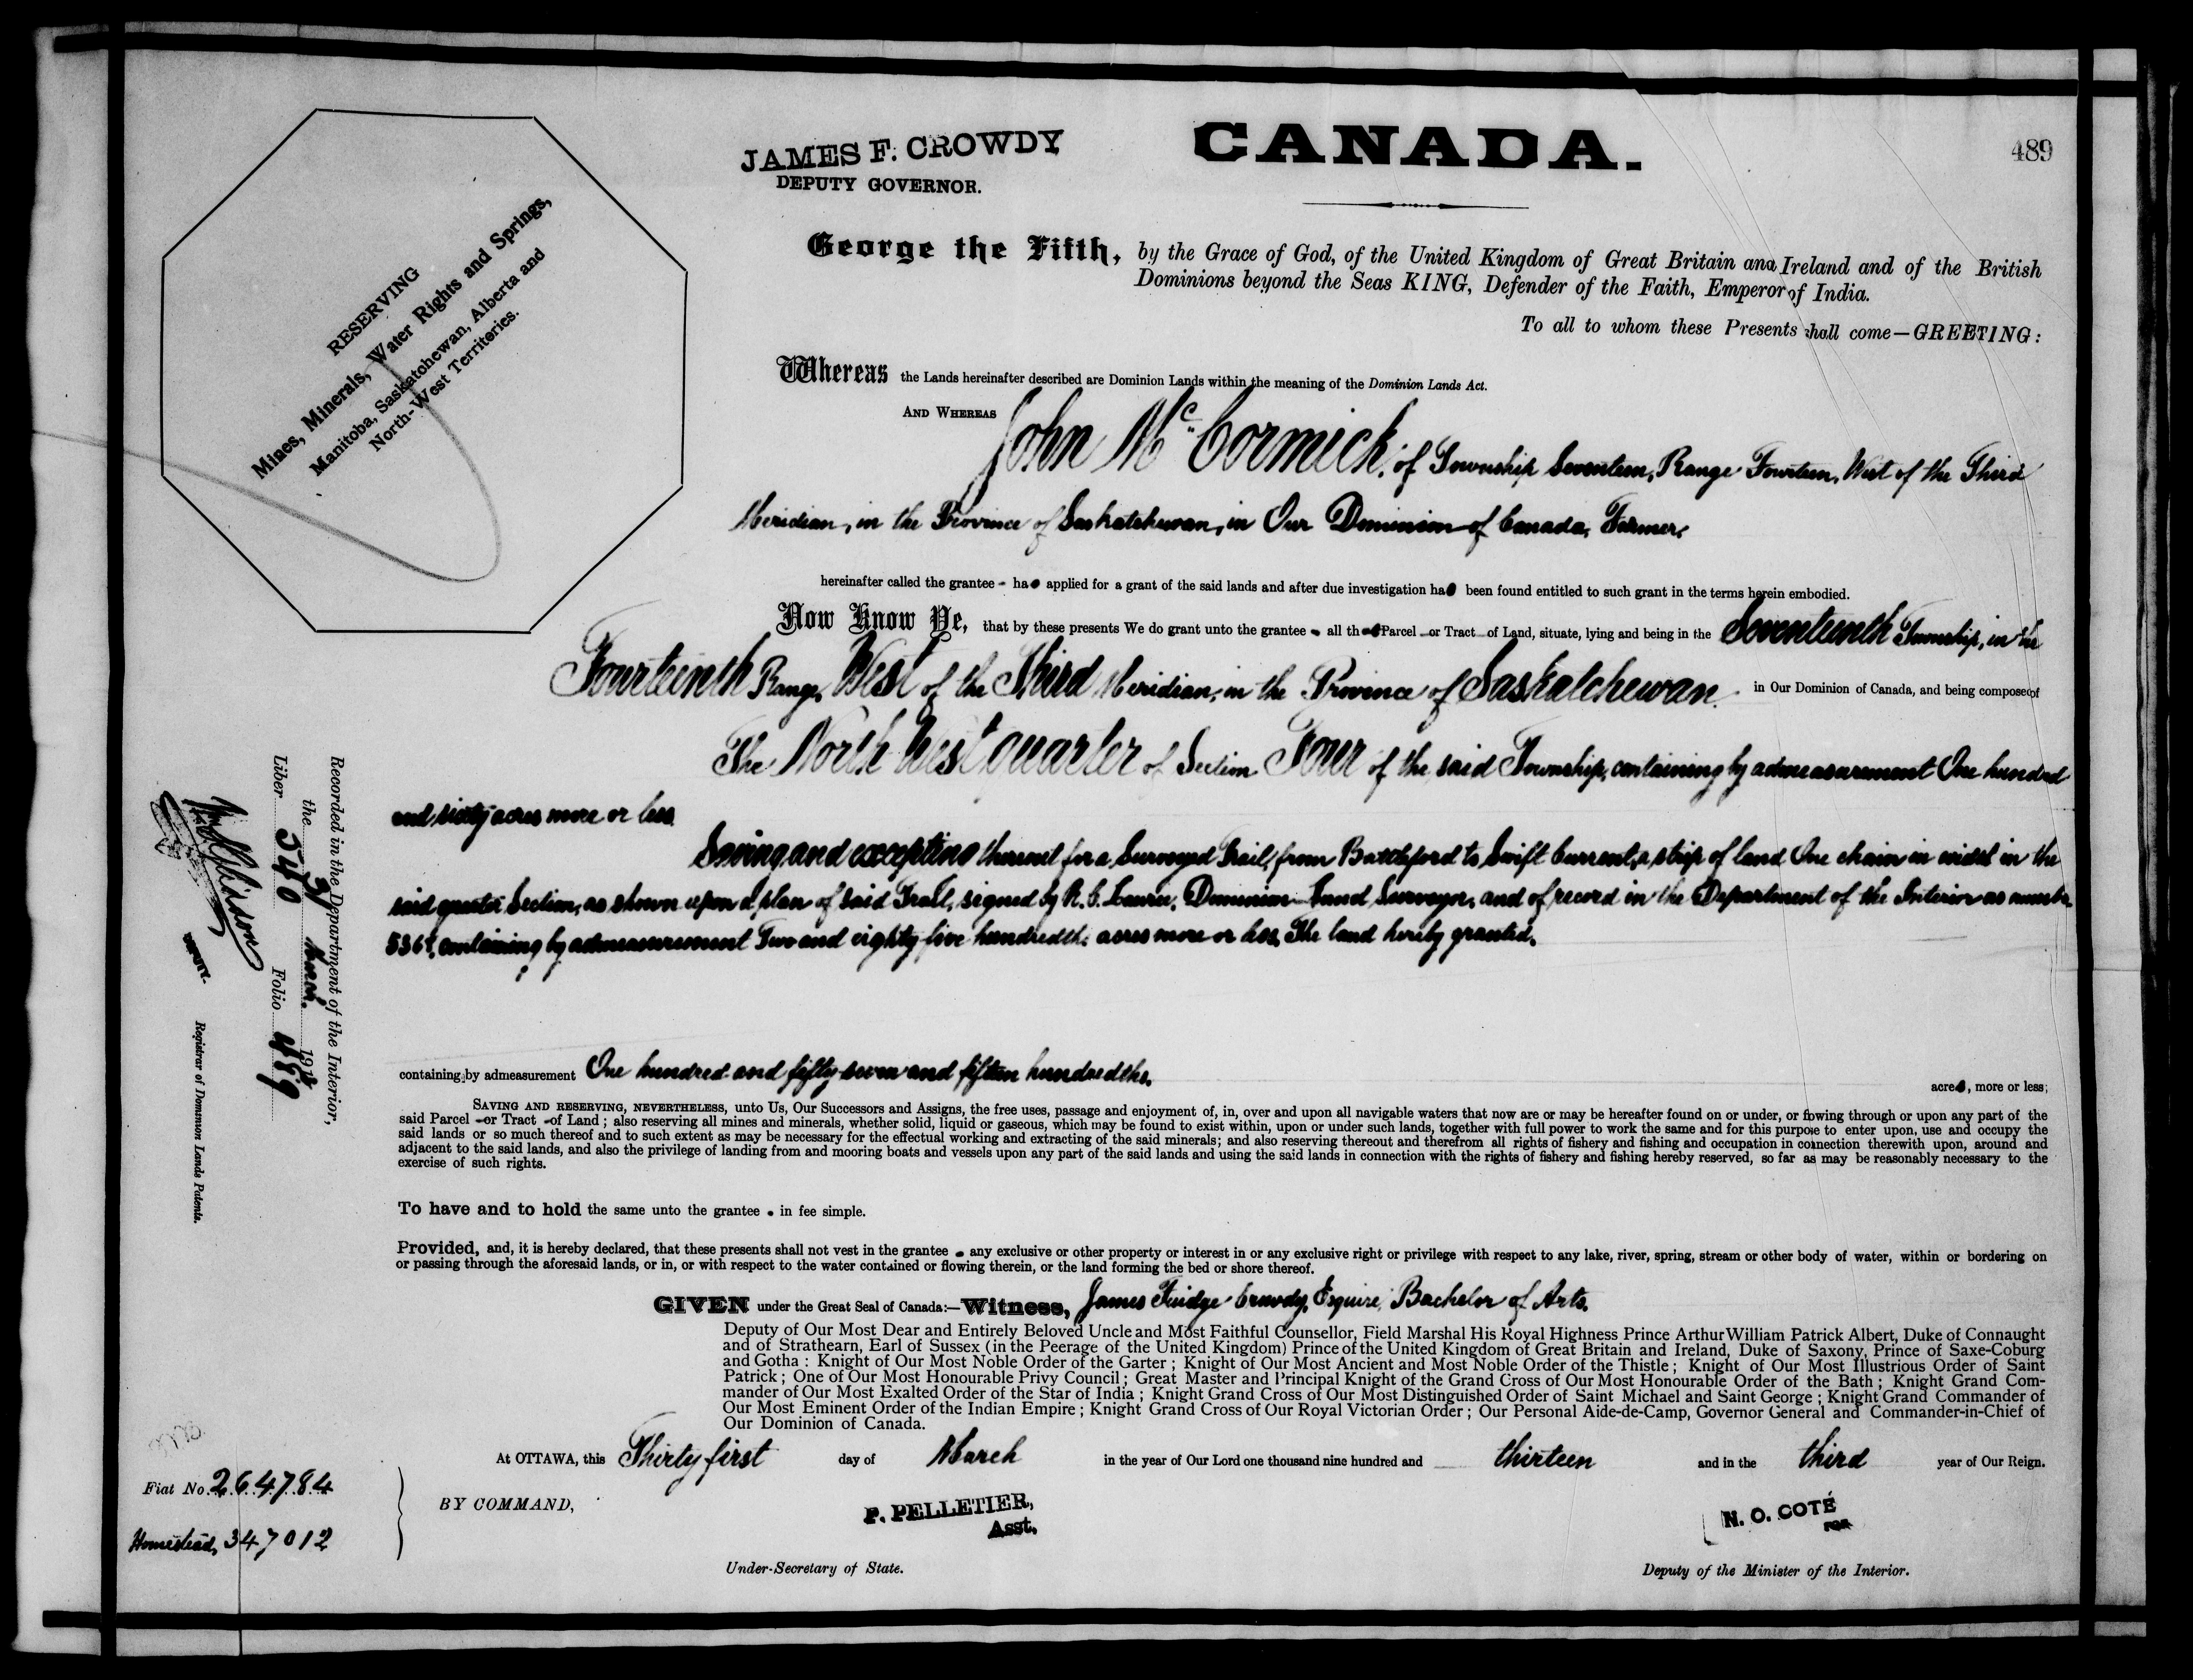 JAMES F. CROWDY
DEPUTY GOVERNOR.
CANADA.
489
RESERVING
Mines, Minerals, Water Rights and Springs,
Manitoba, Saskatchewan, Alberta and
North-West Territories.
George the Fifth, by the Grace of God, of the United Kingdom of Great Britain and Ireland and of the British
Dominions beyond the Seas KING, Defender of the Faith, Emperor of India.
To all to whom these Presents shall come—GREETING:
Whereas the Lands hereinafter described are Dominion Lands within the meaning of the Dominion Lands Act.
AND WHEREAS John McCormick, of Township Seventeen, Range Fourteen, West of the Third
Meridian, in the Province of Saskatchewan, in Our Dominion of Canada, Farmer,
hereinafter called the grantee - has applied for a grant of the said lands and after due investigation has been found entitled to such grant in the terms herein embodied.
Now Know Ye, that by these presents We do grant unto the grantee - all that Parcel or Tract of Land, situate, lying and being in the Seventeenth Township, in the
Fourteenth Range, West of the Third Meridian, in the Province of Saskatchewan in Our Dominion of Canada, and being composed of
The North West quarter of Section Four of the said Township, containing by admeasurement One hundred
and sixty acres more or less.
Saving and excepting thereout for a Surveyed Trail, from Battleford to Swift Current, a strip of land One chain in width in the
said quarter Section, as shown upon a plan of said Trail, signed by R. C. Laurie, Dominion Land Surveyor, and of record in the Department of the Interior as number
containing by admeasurement Two and eighty five hundredths acres more or less. The land hereby granted,
containing by admeasurement One hundred and fifty-seven and fifteen hundredths. acres, more or less;
SAVING AND RESERVING, NEVERTHELESS, unto Us, Our Successors and Assigns, the free uses, passage and enjoyment of, in, over and upon all navigable waters that now are or may be hereafter found on or under, or flowing through or upon any part of the
said Parcel or Tract of Land; also reserving all mines and minerals, whether solid, liquid or gaseous, which may be found to exist within, upon or under such lands, together with full power to work the same and for this purpose to enter upon, use and occupy the
said lands or so much thereof and to such extent as may be necessary for the effectual working and extracting of the said minerals; and also reserving thereout and therefrom all rights of fishery and fishing and occupation in connection therewith upon, around and
adjacent to the said lands, and also the privilege of landing from and mooring boats and vessels upon any part of the said lands and using the said lands in connection with the rights of fishery and fishing hereby reserved, so far as may be reasonably necessary to the
exercise of such rights.
To have and to hold the same unto the grantee - in fee simple.
Provided, and, it is hereby declared, that these presents shall not vest in the grantee - any exclusive or other property or interest in or any exclusive right or privilege with respect to any lake, river, spring, stream or other body of water, within or bordering on
or passing through the aforesaid lands, or in, or with respect to the water contained or flowing therein, or the land forming the bed or shore thereof.
GIVEN under the Great Seal of Canada:—Witness, James Fuidge Crowdy, Esquire, Bachelor of Arts.
Deputy of Our Most Dear and Entirely Beloved Uncle and Most Faithful Counsellor, Field Marshal His Royal Highness Prince Arthur William Patrick Albert, Duke of Connaught
and of Strathearn, Earl of Sussex (in the Peerage of the United Kingdom) Prince of the United Kingdom of Great Britain and Ireland, Duke of Saxony, Prince of Saxe-Coburg
and Gotha: Knight of Our Most Noble Order of the Garter; Knight of Our Most Ancient and Most Noble Order of the Thistle; Knight of Our Most Illustrious Order of Saint
Patrick; One of Our Most Honourable Privy Council; Great Master and Principal Knight of the Grand Cross of Our Most Honourable Order of the Bath; Knight Grand Com-
mander of Our Most Exalted Order of the Star of India; Knight Grand Cross of Our Most Distinguished Order of Saint Michael and Saint George; Knight Grand Commander of
Our Most Eminent Order of the Indian Empire; Knight Grand Cross of Our Royal Victorian Order; Our Personal Aide-de-Camp, Governor General and Commander-in-Chief of
Our Dominion of Canada.
At OTTAWA, this Thirty first day of March in the year of Our Lord one thousand nine hundred and thirteen and in the third year of Our Reign.
BY COMMAND,
P. PELLETIER,
Asst.
Under-Secretary of State.
N. O. COTÉ
FOR
Deputy of the Minister of the Interior.
Recorded in the Department of the Interior,
the
Liber 540 Folio 489
DEPUTY.
Registrar of Dominion Lands Patents.
Fiat No. 264784
Homestead, 347012